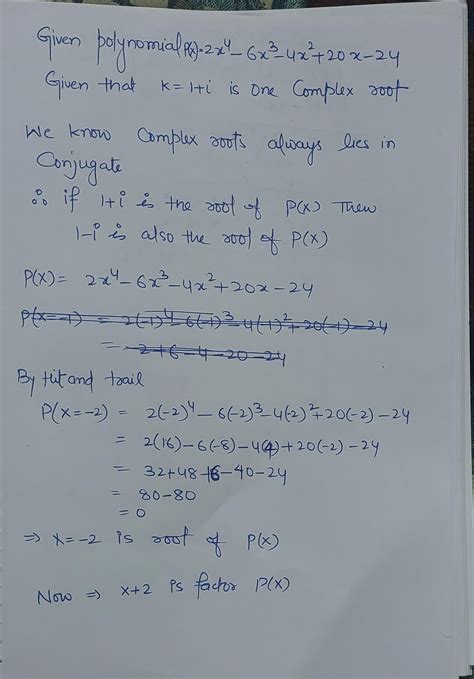 Given polynomial P(x)=2x⁴-6x³-4x²+20x-24
Given that k=1+i is one Complex root
We know Complex roots always lies in
Conjugate
∴ if 1+i is the root of P(x) Then
1-i is also the root of P(x)
P(x)= 2x⁴-6x³-4x²+20x-24
P(x=-1) = 2(-1)⁴-6(-1)³-4(-1)²+20(-1)-24
= 2+6-4-20-24
By Hit and trail
P(x=-2) = 2(-2)⁴-6(-2)³-4(-2)²+20(-2)-24
= 2(16)-6(-8)-4(4)+20(-2)-24
= 32+48-16-40-24
= 80-80
= 0
⇒ x=-2 is root of P(x)
Now ⇒ x+2 is factor P(x)